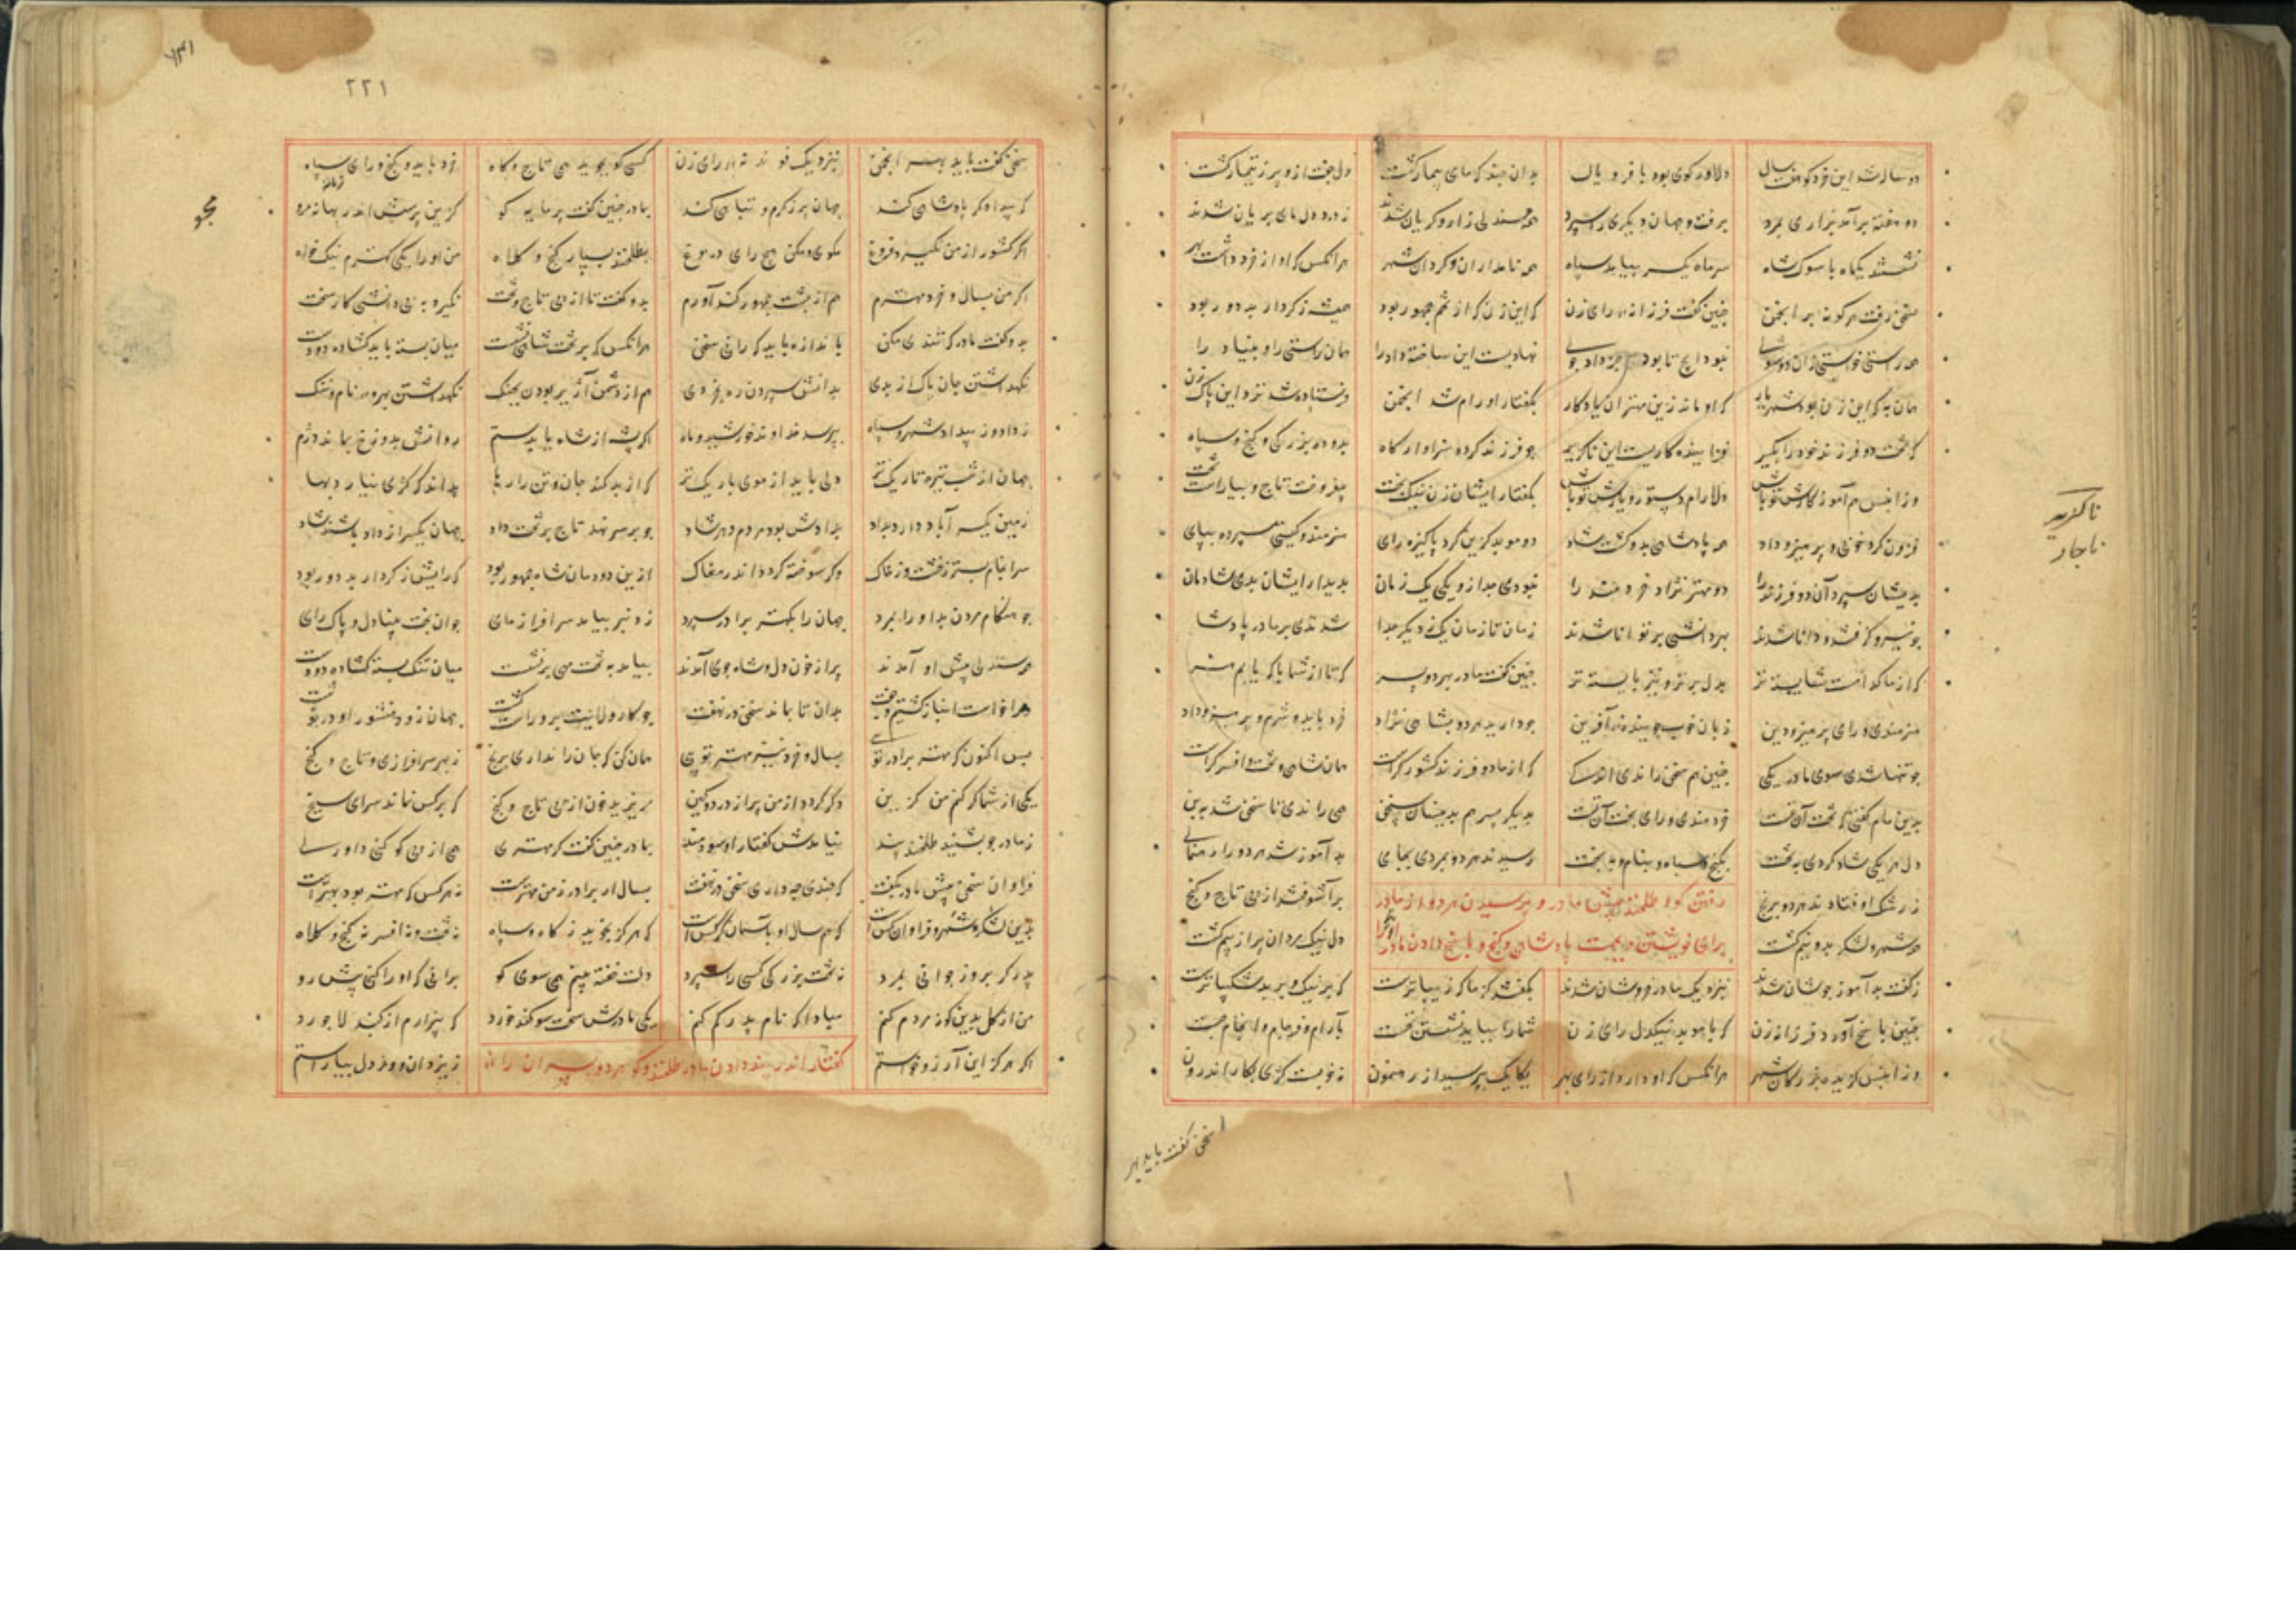 دو سال شد این خرد کو هفت سال دلاور کوی بود با فر و یال بدان چند که مای بیمار گشت دل جفت ازو پر ز تیمار گشت
دو هفته برآمد بزاری بمرد برفت و جهان دیگری را سپرد همه سندلی زار و گریان شدند ز درد دل مای بریان شدند
نشستند یکماه با سوک شاه سر ماه یکسر بیامد سپاه همه نامداران و گردان شهر هرانکس که او از خرد داشت بهر
سخن رفت هر گونه بر انجمن چنین گفت فرزانه رای زن که این زن که از تخم جمهور بود همیشه ز کردار بد دور بود
همه راستی خواستی زان دو سوی نبود ایچ تا بود جز داد جوی نهادیست این ساخته داد را همان راستی را و بنیاد را
همان به که این زن بود شهریار که او ماند زین مهتران یادکار بگفتار او رام شد انجمن فرستاده شد نزد این پاک زن
که تخت دو فرزند خود را بگیر فزاینده کاریست این ناگزیر چو فرزند گردد سزاوار گاه بدو ده بزرگی و گنج و سپاه
وز انپس هم آموزگارش تو باش دلارام و دستور و یارش تو باش بگفتار ایشان زن نیک بخت بیفروخت تاج و بیاراست تخت
فزون کرد خوبی و پرهیز و داد همه پادشاهی بدو گشت شاد دو موبد گزین کرد پاکیزه رای هنرمند و گیتی سپرده بپای
بدیشان سپرد آن دو فرزند را دو مهتر نژاد خردمند را نبودی جدا زو یکی یک زمان بدیدار ایشان بدی شادمان
چو نیرو گرفتند و دانا شدند بهر دانشی بر توانا شدند زمان تا زمان یک ز دیگر جدا شدندی بر مادر پادشا
که از ما کدامست شایسته تر بدل برتر و نیز بایسته تر چنین گفت مادر بهر دو پسر که تا از شما با که یابم هنر
هنرمندی و رای پرهیز و دین زبان خوب جوینده آفرین چو دارید هر دو بشاهی نژاد خرد باید و شرم و پرهیز و داد
چو تنها شدی سوی مادر یکی چنین هم سخن راندی اندکی که از ما دو فرزند کشور کراست همان شاهی و تخت و افسر کراست
بدین مام گفتی که تخت آن تست خردمندی و رای بخت آن تست بدیگر پسر هم بدینسان سخن همی راندی تا سخن شد ببن
دل هر یکی شاد کردی بتخت بگنج و سپاه و بنام و به بخت رسیدند هر دو بمردی بجای بد آموز شد هر دو را رهنمای
ز رشک اوفتادند هر دو برنج رفتن گو و طلخند پیش مادر و پرسیدن هر دو از مادر برآشوفتند از پی تاج و گنج
همه شهر و لشکر بدو نیم گشت برای خویشتن بجهت پادشاهی و گنج و پاسخ دادن مادر دل نیک مردان پر از بیم گشت
ز گفت بد آموز جوشان شدند بنزدیک مادر خروشان شدند بگفتند کز ما که زیباترست که بر نیک و بر بد شکیباترست
چنین پاسخ آورد فرزانه زن که با موبد نیکدل رای زن شما را بباید نشستن نخست بآرام و فرجام و انجام جست
وز انپس گزیده بزرگان شهر هرانکس که او دارد از رای بهر یکایک بپرسید از رهنمون نه خوبست کژی بکار اندرون
ناگزیر
ناچار
سخن گفت باید بهر
۷۳۱
۲۲۱
سخن گفت باید بهر انجمن بنزدیک فرزانه رای زن کسی کو بجوید همی تاج و گاه خرد باید و گنج و رای سپاه
که بیدادگر پادشاهی کند جهان پر ز گرم و تباهی کند بمادر چنین گفت پرمایه گو کزین پرسش اندر بهانه مرو
مجو
اگر کشور از من نگیرد فروغ مگوی و مکن هیچ رای دروغ بطلخند بسپار گنج و کلاه من او را یکی کهترم نیک خواه
اگر من بسال و خرد مهترم هم از پشت جمهور کندآورم بدو گفت تا از پی تاج و تخت نگیرد به بی دانشی کار سخت
بدو گفت مادر که تندی مکن باندازه باید که رانی سخن هرانکس که بر تخت شاهی نشست میان بسته باید گشاده دو دست
نگهداشتن جان پاک از بدی بدانش سپردن ره بخردی هم از دشمن آژیر بودن بجنگ نگهداشتن بهره نام و ننگ
ز داد و ز بیداد شهر و سپاه بپرسد خداوند خورشید و ماه اگر پشه از شاه یابد ستم روانش بدوزخ بماند دژم
جهان از شب تیره تاریک تر دلی باید از موی باریک تر که از بد کند جان و تن را رها بداند که کژی نیارد بها
چو بر سر نهد تاج بر تخت داد جهان یکسر از داد باشند شاد
سرانجام بستر ز خشت و ز خاک وگر سوخته گردد اندر مغاک ازین دودمان شاه جمهور بود که رایش ز کردار بد دور بود
چو هنگام مردن بد او را بمرد جهان را بکهتر برادر سپرد ز دنبر بیامد سرافراز مای جوان بخت بینادل و پاک رای
همه سندلی پیش او آمدند پر از خون دل و شاه جوی آمدند بیامد به تخت مهی برنشست میان تنگ بسته گشاده دو دست
مرا خواست انباز گشتیم و جفت بدان تا نماند سخن در نهفت
پس اکنون که مهتر برادر توی بسال و خرد نیز مهتر توی همان کن که جان را نداری برنج ز بهر سرافرازی و تاج و گنج
یکی از شما گر کنم من گزین دگر گردد از من پر از درد و کین مریزید خون از پی تاج و گنج که بر کس نماند سرای سپنج
ز مادر چو بشنید طلخند پند نیامدش گفتار او سودمند بمادر چنین گفت کز مهتری همی از پی گو کنی داوری
بسال ار برادر ز من مهترست نه هر کس که مهتر بود بهترست
بدین لشکر و شهر فراوان کس است که هم سال او بآسمان کرکس است که هرگز نجویند گاه و سپاه نه تخت و نه افسر نه گنج و کلاه
پدر گر بروز جوانی بمرد نه تخت بزرگی کسی را سپرد دلت جفته بینم همی سوی گو برانی که او را کنی پیش رو
من از گل بدین گونه مردم کنم مبادا که نام پدر گم کنم یکی مادرش سخت سوگند خورد که بیزارم از گنبد لاجورد
اگر هرگز این آرزو خواستم گفتار اندر پند دادن مادر طلخند و گو هر دو پسران را ز یزدان و وز دل بیاراستم